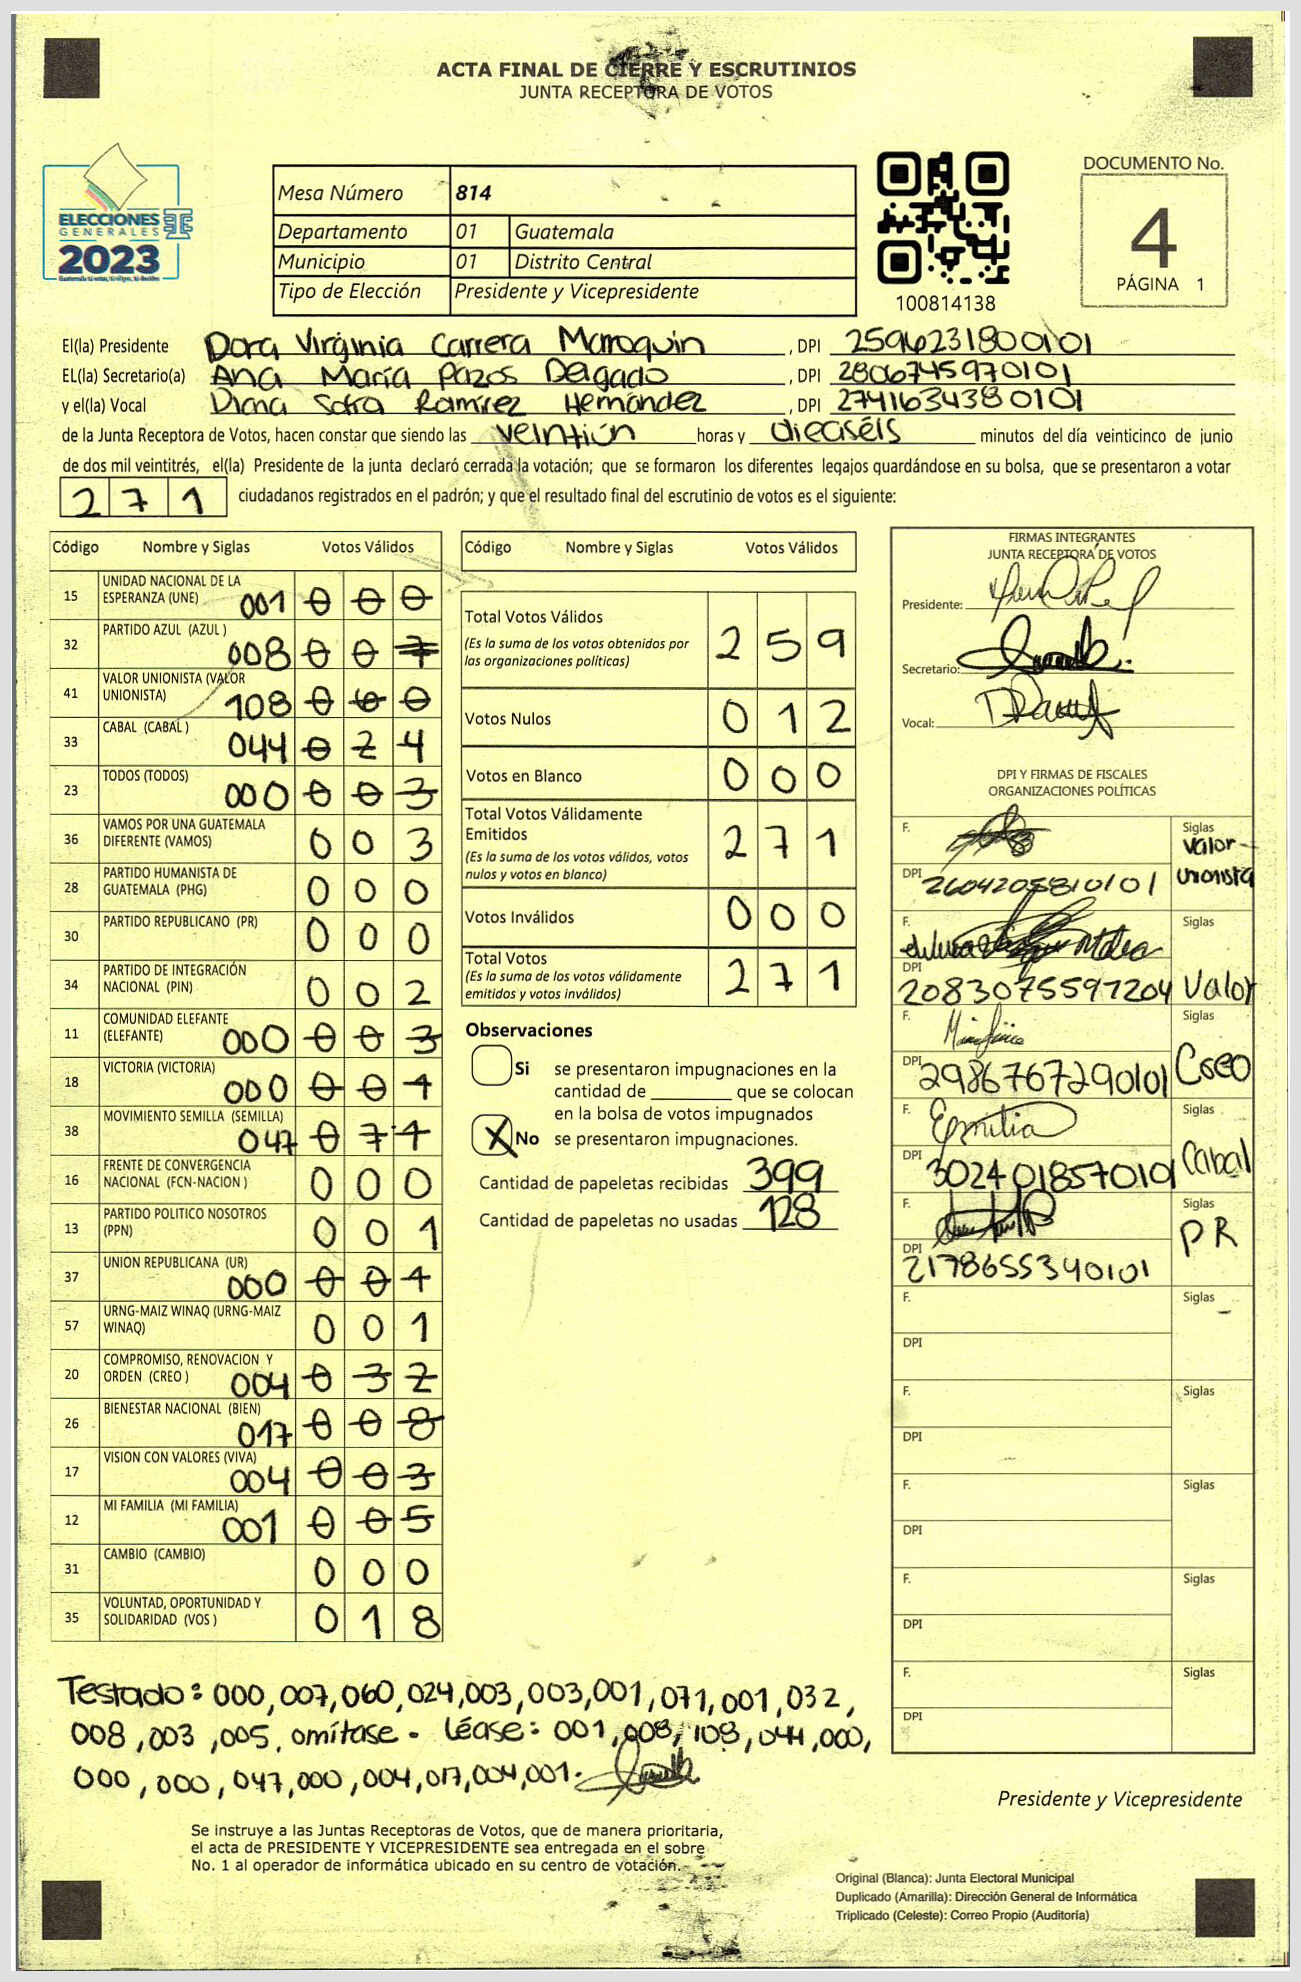 ACTA FINAL DE CIERRE Y ESCRUTINIOS
JUNTA RECEPTORA DE VOTOS
ELECCIONES
GENERALES
2023
Mesa Número 814
Departamento 01 Guatemala
Municipio 01 Distrito Central
Tipo de Elección Presidente y Vicepresidente
100814138
DOCUMENTO No.
4
PÁGINA 1
El(la) Presidente Dora Virginia Carrera Marroquin , DPI 2596231800101
EL(la) Secretario(a) Ana María Pazos Delgado , DPI 2806745970101
y el(la) Vocal Diana Sofia Ramírez Hernández , DPI 2741634380101
de la Junta Receptora de Votos, hacen constar que siendo las veintiún horas y dieciséis minutos del día veinticinco de junio
de dos mil veintitrés, el(la) Presidente de la junta declaró cerrada la votación; que se formaron los diferentes legajos guardándose en su bolsa, que se presentaron a votar
271 ciudadanos registrados en el padrón; y que el resultado final del escrutinio de votos es el siguiente:
Código Nombre y Siglas Votos Válidos
15 UNIDAD NACIONAL DE LA ESPERANZA (UNE) 001 0 0 0
32 PARTIDO AZUL (AZUL ) 008 0 0 7
41 VALOR UNIONISTA (VALOR UNIONISTA) 108 0 6 0
33 CABAL (CABAL ) 044 0 2 4
23 TODOS (TODOS) 000 0 0 3
36 VAMOS POR UNA GUATEMALA DIFERENTE (VAMOS) 0 0 3
28 PARTIDO HUMANISTA DE GUATEMALA (PHG) 0 0 0
30 PARTIDO REPUBLICANO (PR) 0 0 0
34 PARTIDO DE INTEGRACIÓN NACIONAL (PIN) 0 0 2
11 COMUNIDAD ELEFANTE (ELEFANTE) 000 0 0 3
18 VICTORIA (VICTORIA) 000 0 0 1
38 MOVIMIENTO SEMILLA (SEMILLA) 047 0 7 1
16 FRENTE DE CONVERGENCIA NACIONAL (FCN-NACION ) 0 0 0
13 PARTIDO POLITICO NOSOTROS (PPN) 0 0 1
37 UNION REPUBLICANA (UR) 000 0 0 1
57 URNG-MAIZ WINAQ (URNG-MAIZ WINAQ) 0 0 1
20 COMPROMISO, RENOVACION Y ORDEN (CREO ) 004 0 3 2
26 BIENESTAR NACIONAL (BIEN) 017 0 0 8
17 VISION CON VALORES (VIVA) 004 0 0 3
12 MI FAMILIA (MI FAMILIA) 001 0 0 5
31 CAMBIO (CAMBIO) 0 0 0
35 VOLUNTAD, OPORTUNIDAD Y SOLIDARIDAD (VOS ) 0 1 8
Código Nombre y Siglas Votos Válidos
Total Votos Válidos 2 5 9
(Es la suma de los votos obtenidos por
las organizaciones políticas)
Votos Nulos 0 1 2
Votos en Blanco 0 0 0
Total Votos Válidamente
Emitidos 2 7 1
(Es la suma de los votos válidos, votos
nulos y votos en blanco)
Votos Inválidos 0 0 0
Total Votos 2 7 1
(Es la suma de los votos válidamente
emitidos y votos inválidos)
Observaciones
Si se presentaron impugnaciones en la
cantidad de ________ que se colocan
en la bolsa de votos impugnados
X No se presentaron impugnaciones.
Cantidad de papeletas recibidas 399
Cantidad de papeletas no usadas 128
FIRMAS INTEGRANTES
JUNTA RECEPTORA DE VOTOS
Presidente:
Secretario:
Vocal:
DPI Y FIRMAS DE FISCALES
ORGANIZACIONES POLÍTICAS
F. Siglas Valor
DPI 2604205810101 Unionista
F. Siglas
DPI 2083075591204 Valor
F. Siglas
DPI 2986767290101 Creo
F. Emilia Siglas
DPI 3024018570101 Cabal
F. Siglas
DPI 2178655340101 PR
F. Siglas
DPI
F. Siglas
DPI
F. Siglas
DPI
F. Siglas
DPI
F. Siglas
DPI
Testado: 000,007,060,024,003,003,001,071,001,032,
008,003,005, omítase. Léase: 001,008,108,044,000,
000,000,047,000,004,017,004,001.
Presidente y Vicepresidente
Se instruye a las Juntas Receptoras de Votos, que de manera prioritaria,
el acta de PRESIDENTE Y VICEPRESIDENTE sea entregada en el sobre
No. 1 al operador de informática ubicado en su centro de votación.
Original (Blanca): Junta Electoral Municipal
Duplicado (Amarilla): Dirección General de Informática
Triplicado (Celeste): Correo Propio (Auditoría)